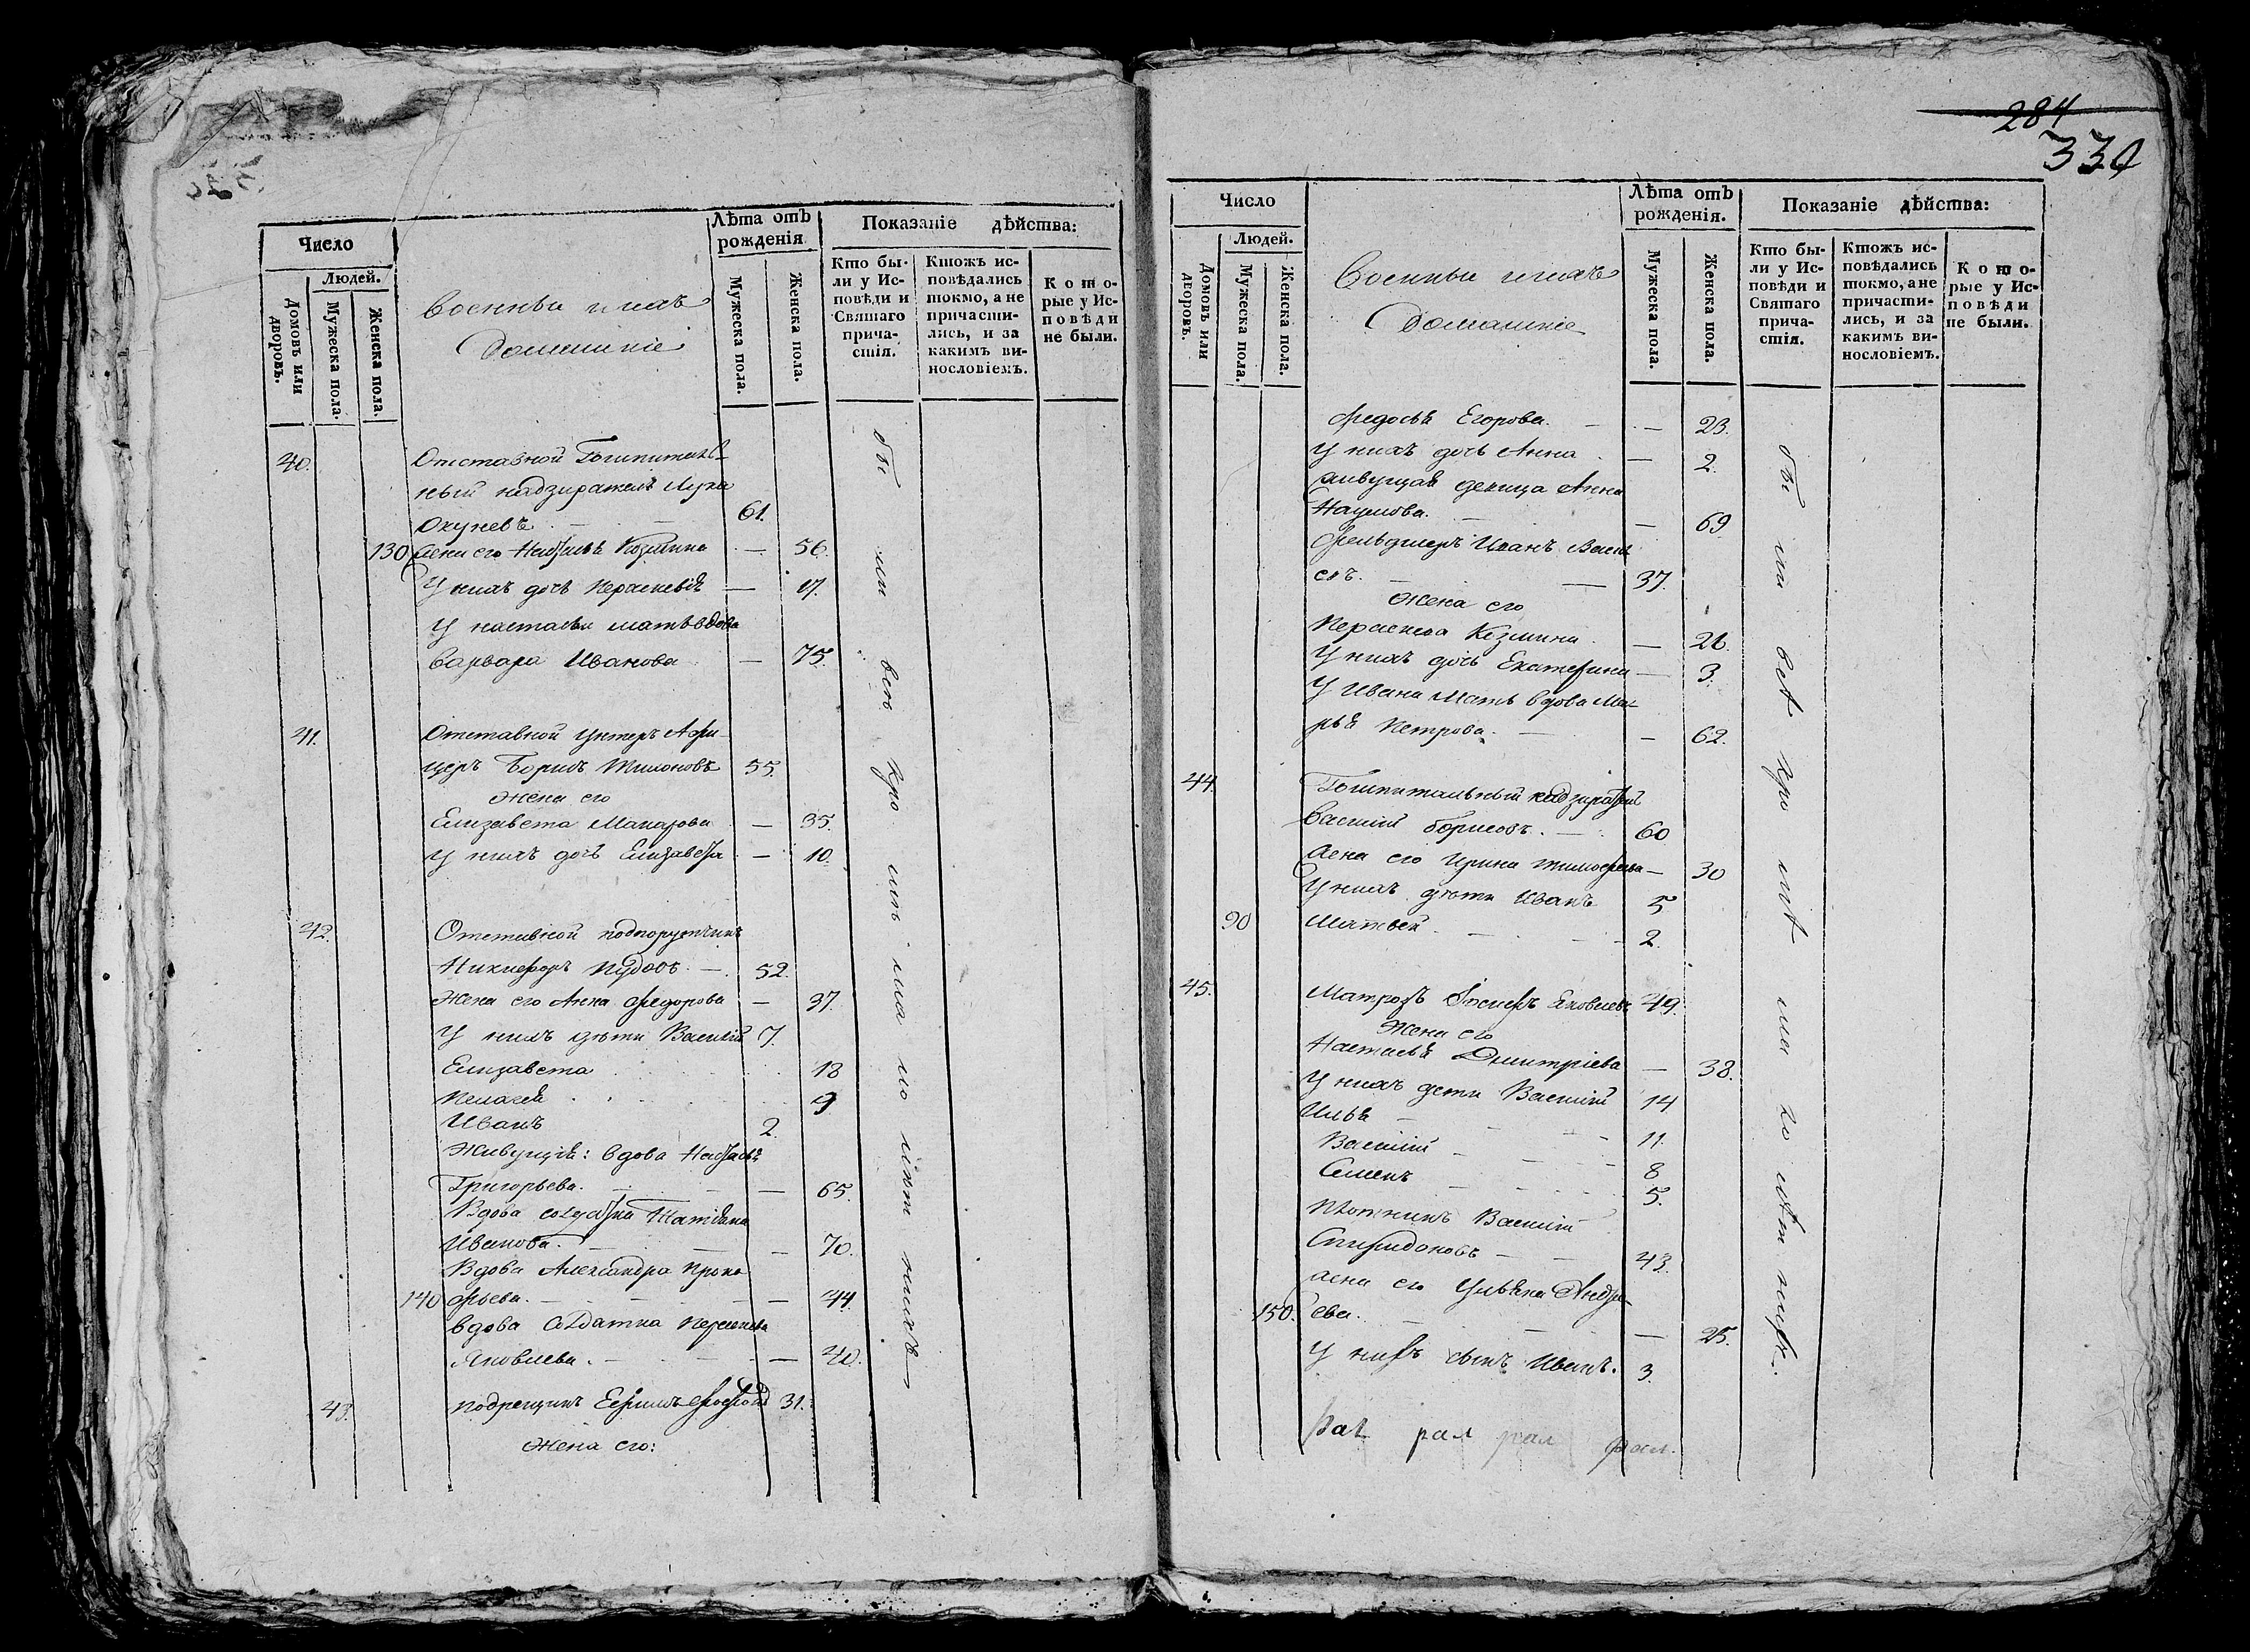 Число
Людей.
Домовъ или дворовъ.
Мужеска пола.
Женска пола.
Военныи и ихъ
Домашніе
Лѣта отъ рожденія
Мужеска пола.
Женска пола.
Показаніе дѣйства:
Кто были у Исповѣди и Святаго причастія.
Ктожъ исповѣдались токмо, а не причастились, и за какимъ винословіемъ.
Которые у Исповѣди не были.
40. Отставной Гошпиталь-
ный надзиратель Лука
Окуневъ. — — 61.
130 жена его Настасья Козмина — 56.
У нихъ дочь Параскевія — 17.
У настасьи мать вдова
Варвара Иванова — 75.
41. Отставной Унтеръ Афи-
церъ Борисъ Тихоновъ 55.
жена его
Елизавета Макарова — 35.
У нихъ дочь Елизавета — 10.
42. Отставной подпорутчикъ
Никифоръ Пудовъ. — 52.
Жена его Анна Федорова — 37.
У нихъ дѣти Василій 7.
Елизавета 18
Пелагея 9
Иванъ 2.
Живущія: вдова Настасья
Григорьева. — — — 65.
Вдова солдатка Татіана
Иванова. — — — 70.
Вдова Александра Проко
140 фьева. — — — 44.
вдова Солдатка Параскева
Яковлева. — — — 40.
43. подрещикъ Ефимъ 31.
Жена его:
284
330
Число
Людей.
Домовъ или дворовъ.
Мужеска пола.
Женска пола.
Военныи и ихъ
Домашніе
Лѣта отъ рожденія.
Мужеска пола.
Женска пола.
Показаніе дѣйства:
Кто были у Исповѣди и Святаго причастія.
Ктожъ исповѣдались токмо, а не причастились, и за какимъ винословіемъ.
Которые у Исповѣди не были.
Федосья Егорова. — — 23.
У нихъ дочь Анна — 2.
живущая девица Анна
Наумова. — — 69
Фельдшеръ Иванъ Василь
евъ. — — 37.
Жена его
Параскева Козмина — 26.
У нихъ дочь Екатерина — 3.
У Ивана Мать вдова Ма-
рья Петрова. — — 62.
44. Гошпитальный надзиратель
Василій Борисовъ. — 60
жена его Ирина Тимофеева — 30
У нихъ дѣти Иванъ 5
90 Матвей — — 2.
45. Матрозъ Іосифъ Яковлевъ 49.
Жена его
Настасья Дмитріева — 38.
У нихъ дети Василій 14
Илья — — 11.
Василій — — 8
Семенъ — — 5.
Плотникъ Василій
Спиридоновъ — — 43.
жена его Ульяна Андре-
150. ева. — — — 25.
У нихъ сынъ Иванъ. 3.